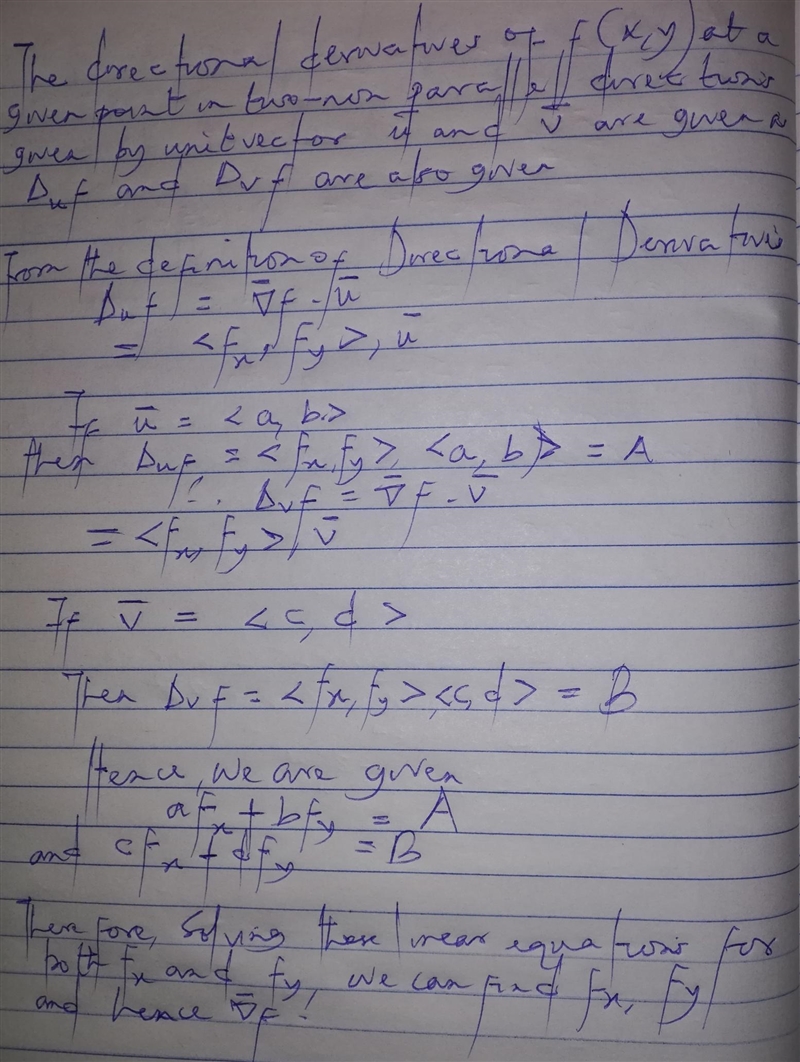 The directional derivatives of f(x,y) at a
given point in two-non parallel directions
given by unit vector ū and v̄ are given a
Duf and Dvf are also given
From the definition of Directional Derivative
Duf = ∇̄f · ū
= <fx, fy>, ū
If ū = <a, b>
then Duf = <fx, fy>, <a, b> = A
∴ Dvf = ∇̄f - v̄
= <fx, fy>, v̄
If v̄ = <c, d>
Then Dvf = <fx, fy>, <c, d> = B
Hence, we are given
afx + bfy = A
and cfx + dfy = B
Therefore, Solving these linear equations for
both fx and fy, we can find fx, fy
and hence ∇̄f!